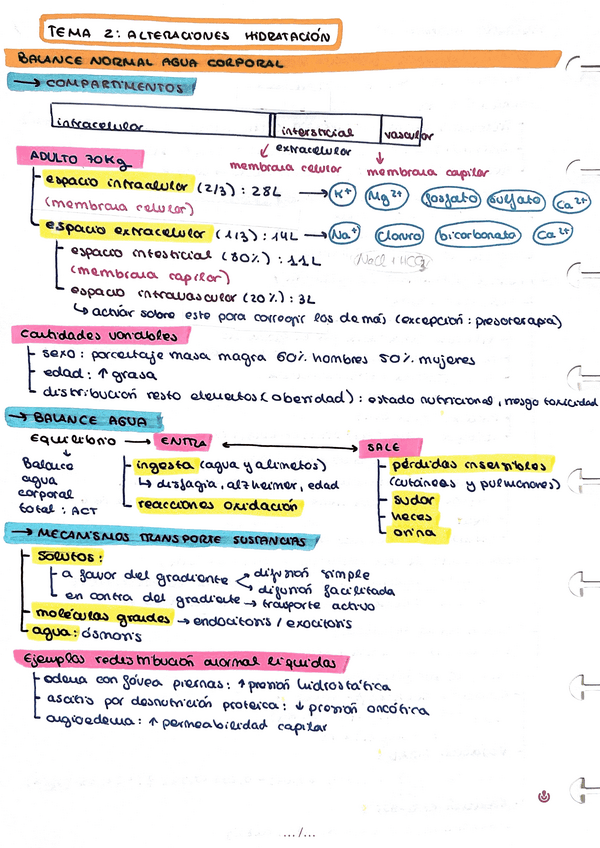 TEMA 2: ALTERACIONES HIDRATACIÓN
BALANCE NORMAL AGUA CORPORAL
→ COMPARTIMENTOS
intracelular intersticial vascular
extracelular
membrana celular membrana capilar
ADULTO 70Kg
espacio intracelular (2/3): 28L → K+ Mg2+ fosfato sulfato Ca2+
(membrana celular)
espacio extracelular (1/3): 14L → Na+ Cloruro bicarbonato Ca2+
espacio intesticial (80%): 11L NaCl + HCO3
(membrana capilar)
espacio intravascular (20%): 3L
↳ activar sobre este para corregir los demás (excepción: presoterapia)
Cantidades variables
sexo: porcentaje masa magra 60% hombres 50% mujeres
edad: ↑ grasa
distribución resto elementos (obesidad): estado nutricional, riesgo toxicidad
→ BALANCE AGUA
Equilibrio → ENTRA ↔ SALE
Balance agua corporal total: ACT
ingesta (agua y alimetos)
↳ disfagia, alzheimer, edad
reacciones oxidación
pérdidas insensibles
(cutáneas y pulmonares)
sudor
heces
orina
→ MECANISMOS TRANSPORTE SUSTANCIAS
solutos:
a favor del gradiente < difusión simple
difusión facilitada
en contra del gradiente → trasporte activo
moléculas grandes → endocitosis / exocitosis
agua: ósmosis
Ejemplos redistribución anormal líquidos
edema con fóvea piernas: ↑ presión hidrostática
ascitis por desnutrición proteica: ↓ presión oncótica
angioedema: ↑ permeabilidad capilar
.../...